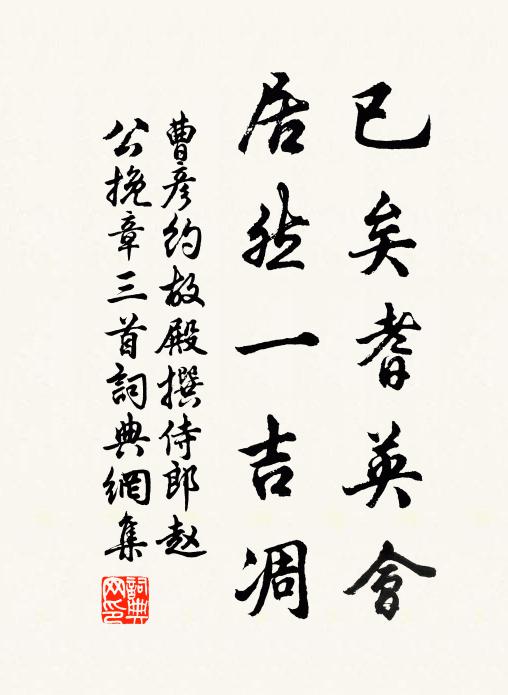 已矣耆英會
居然一吉凋
曹彥約故殿撰侍郎赵
公挽章三首詞典網集
詞典
网印